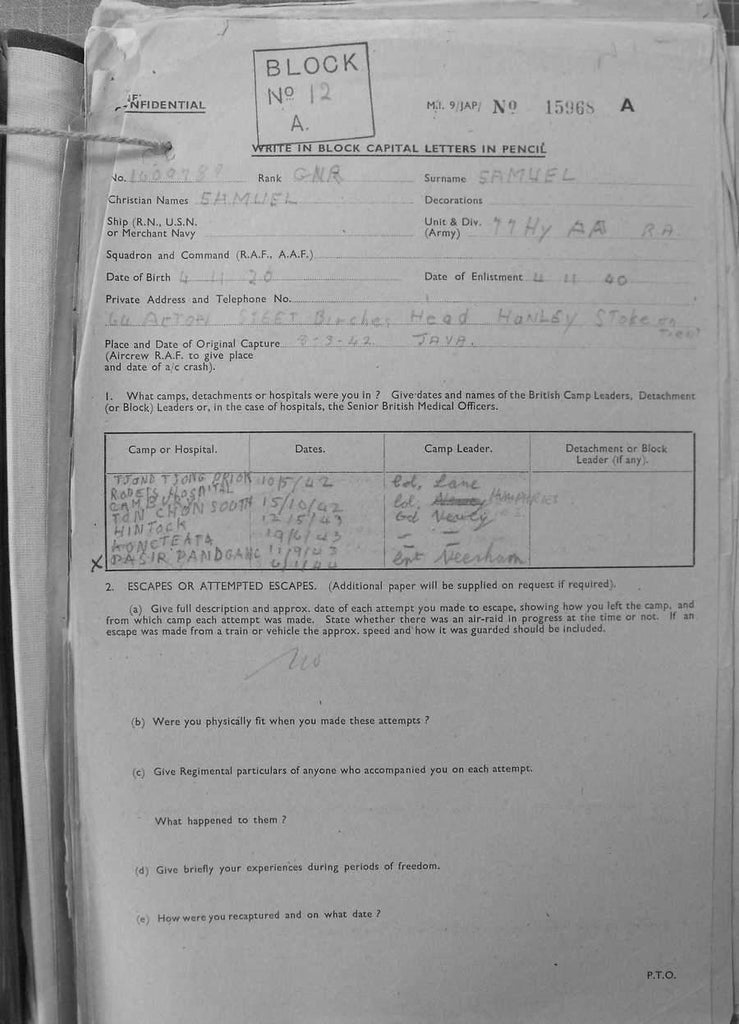 BLOCK
No 12
A.
NFIDENTIAL
M.I. 9/JAP/ No 15968 A
WRITE IN BLOCK CAPITAL LETTERS IN PENCIL
No. Rank GNR Surname SAMUEL
Christian Names SAMUEL Decorations
Ship (R.N., U.S.N. or Merchant Navy
Unit & Div. (Army) 77 Hy AA R.A.
Squadron and Command (R.A.F., A.A.F.)
Date of Birth 4 11 20 Date of Enlistment 4 11 40
Private Address and Telephone No.
64 ACTON STEET Birches Head HANLEY Stoke on Trent
Place and Date of Original Capture 8-3-42 JAVA.
(Aircrew R.A.F. to give place
and date of a/c crash).
1. What camps, detachments or hospitals were you in ? Give dates and names of the British Camp Leaders, Detachment
(or Block) Leaders or, in the case of hospitals, the Senior British Medical Officers.
Camp or Hospital. Dates. Camp Leader. Detachment or Block Leader (if any).
TJOND TJONG PRIOK 10/5/42 Col. Lane
HOSPITAL
15/10/42 Col. HUMPHRIES
TAN CHON SOOTH 12/5/43
HINTOCK 19/6/43 - -
KONCTEATA 11/9/43 -
X PASIR PANDGANG 6/1/44 Cpt Neesham
2. ESCAPES OR ATTEMPTED ESCAPES. (Additional paper will be supplied on request if required).
(a) Give full description and approx. date of each attempt you made to escape, showing how you left the camp, and
from which camp each attempt was made. State whether there was an air-raid in progress at the time or not. If an
escape was made from a train or vehicle the approx. speed and how it was guarded should be included.
No
(b) Were you physically fit when you made these attempts ?
(c) Give Regimental particulars of anyone who accompanied you on each attempt.
What happened to them ?
(d) Give briefly your experiences during periods of freedom.
(e) How were you recaptured and on what date ?
P.T.O.